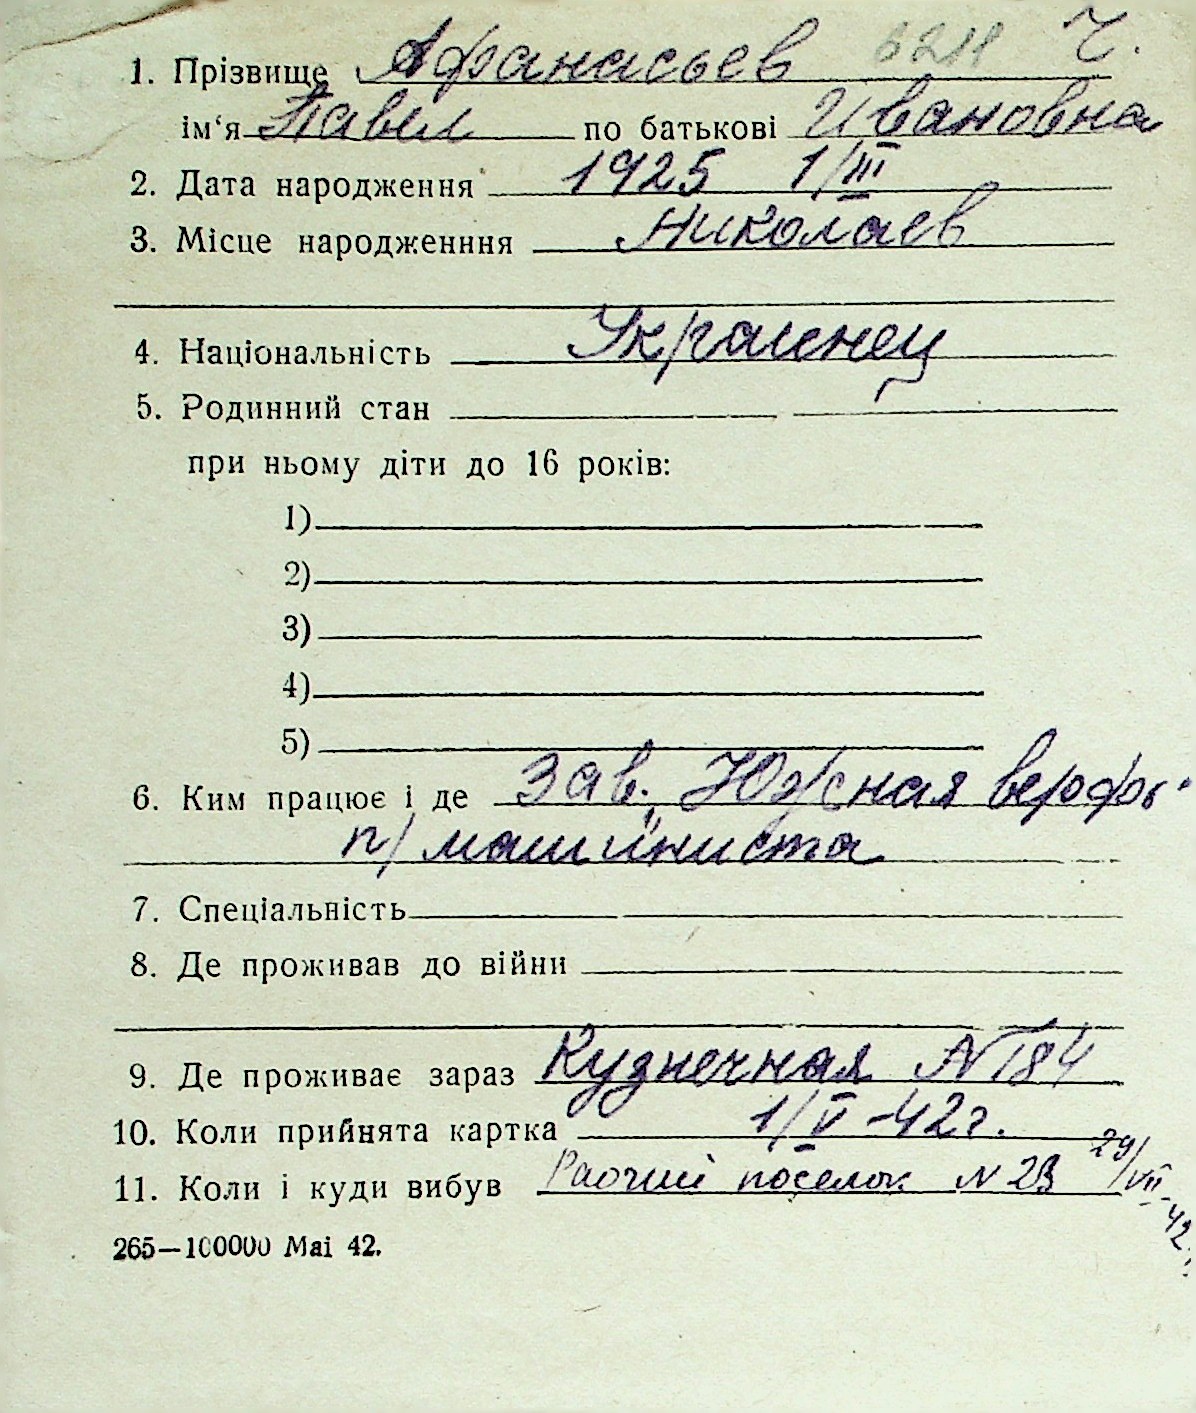 1. Прізвище Афанасьев Ч.
ім‘я Павел по батькові Ивановна
2. Дата народження 1925 1/III
3. Місце народженння Николаев
4. Національність Украинец
5. Родинний стан
при ньому діти до 16 років:
1)
2)
3)
4)
5)
6. Ким працює і де Зав. Южная верфь
п/ машиниста
7. Спеціальність
8. Де проживав до війни
9. Де проживає зараз Кузнечная N 184
10. Коли прийнята картка 1/V -42 г.
11. Коли і куди вибув Раочий поселок N 23 29/VII-42.
265—100000 Mai 42.